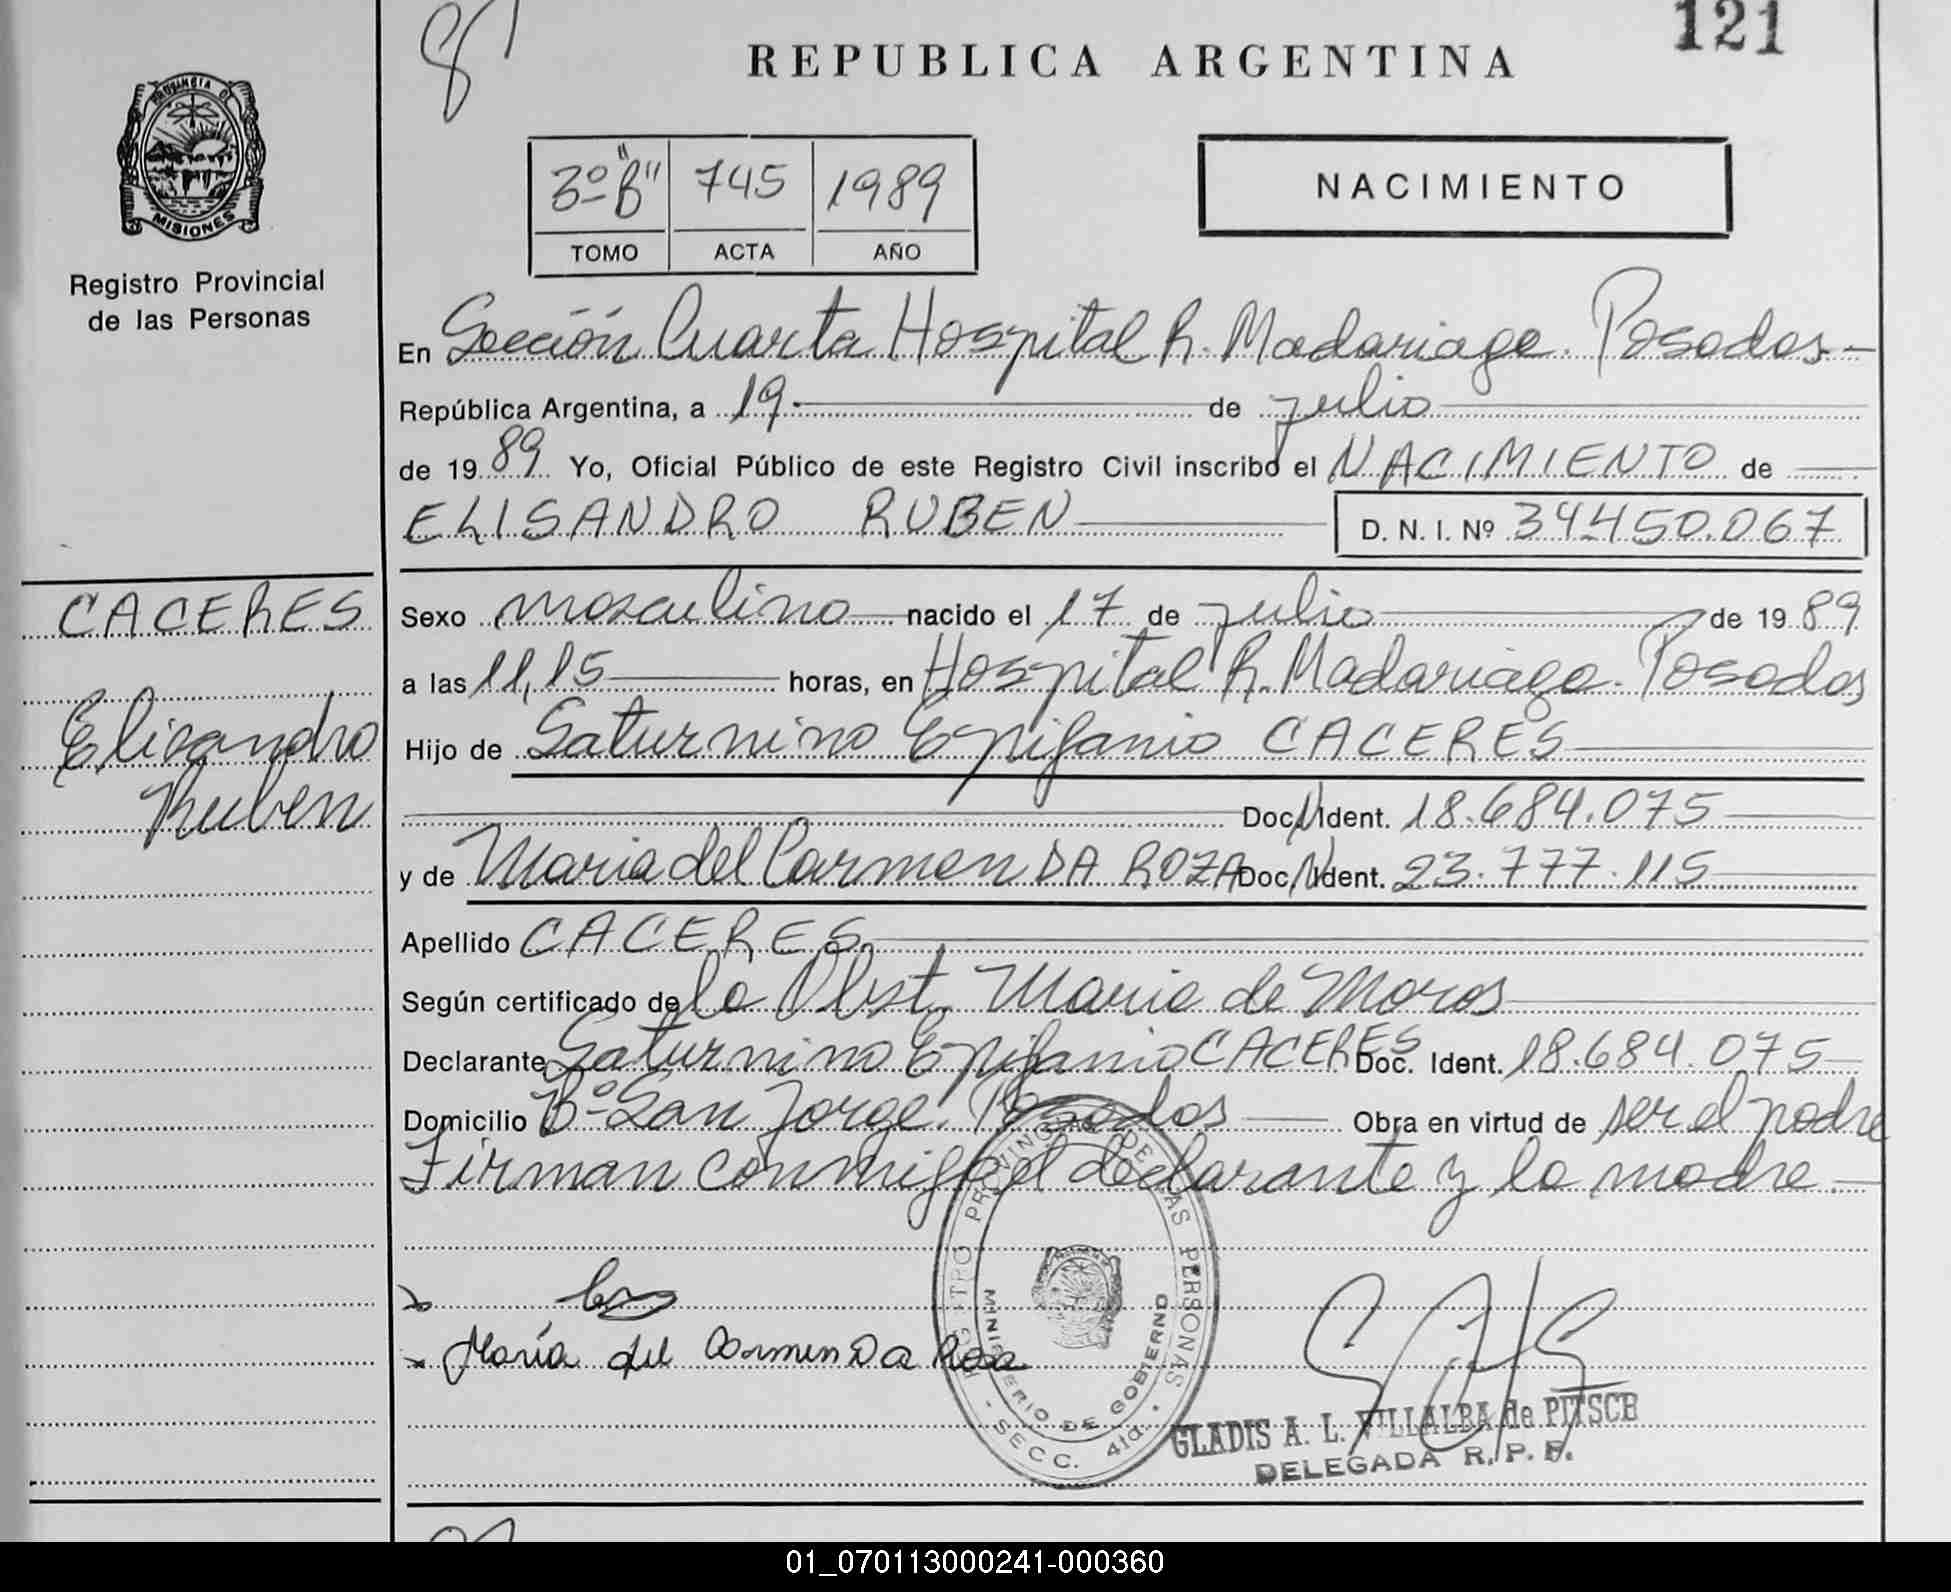 121
REPUBLICA ARGENTINA
PROVINCIA DE
MISIONES
Registro Provincial
de las Personas
3º "B" 745 1989
TOMO ACTA AÑO
NACIMIENTO
En Sección Cuarta Hospital R. Madariaga. Posadas-
República Argentina, a 19.- de julio
de 1989 Yo, Oficial Público de este Registro Civil inscribo el NACIMIENTO de
ELISANDRO RUBEN D. N. I. Nº 34.450.067
CACERES
Elisandro
Ruben
Sexo masculino nacido el 17 de julio de 1989
a las 11,15 horas, en Hospital R. Madariaga. Posadas
Hijo de Saturnino Epifanio CACERES
Doc. Ident. 18.684.075
y de Maria del Carmen DA ROZA Doc. Ident. 23.777.115
Apellido CACERES
Según certificado de la Obst. Maria de Moros
Declarante Saturnino Epifanio CACERES Doc. Ident. 18.684.075
Domicilio Bº San Jorge. Posadas Obra en virtud de ser el padre
Firman conmigo el declarante y la madre.-
María del Carmen Da Rosa
REGISTRO PROVINCIAL DE LAS PERSONAS
MINISTERIO DE GOBIERNO
- SECC. 4ta. -
GLADIS A. L. VILLALBA de PITSCH
DELEGADA R. P. P.
01_070113000241-000360